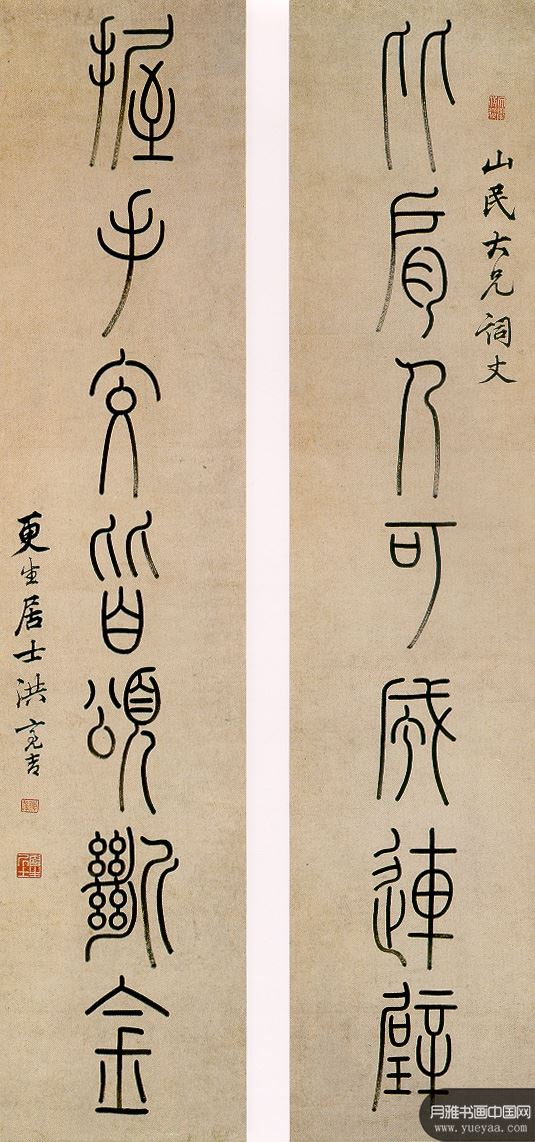 山民大兄詞丈
比肩人可成連璧
握手交皆頌斷金
更生居士洪亮吉
月雅书画中国网
www.yueyaa.com